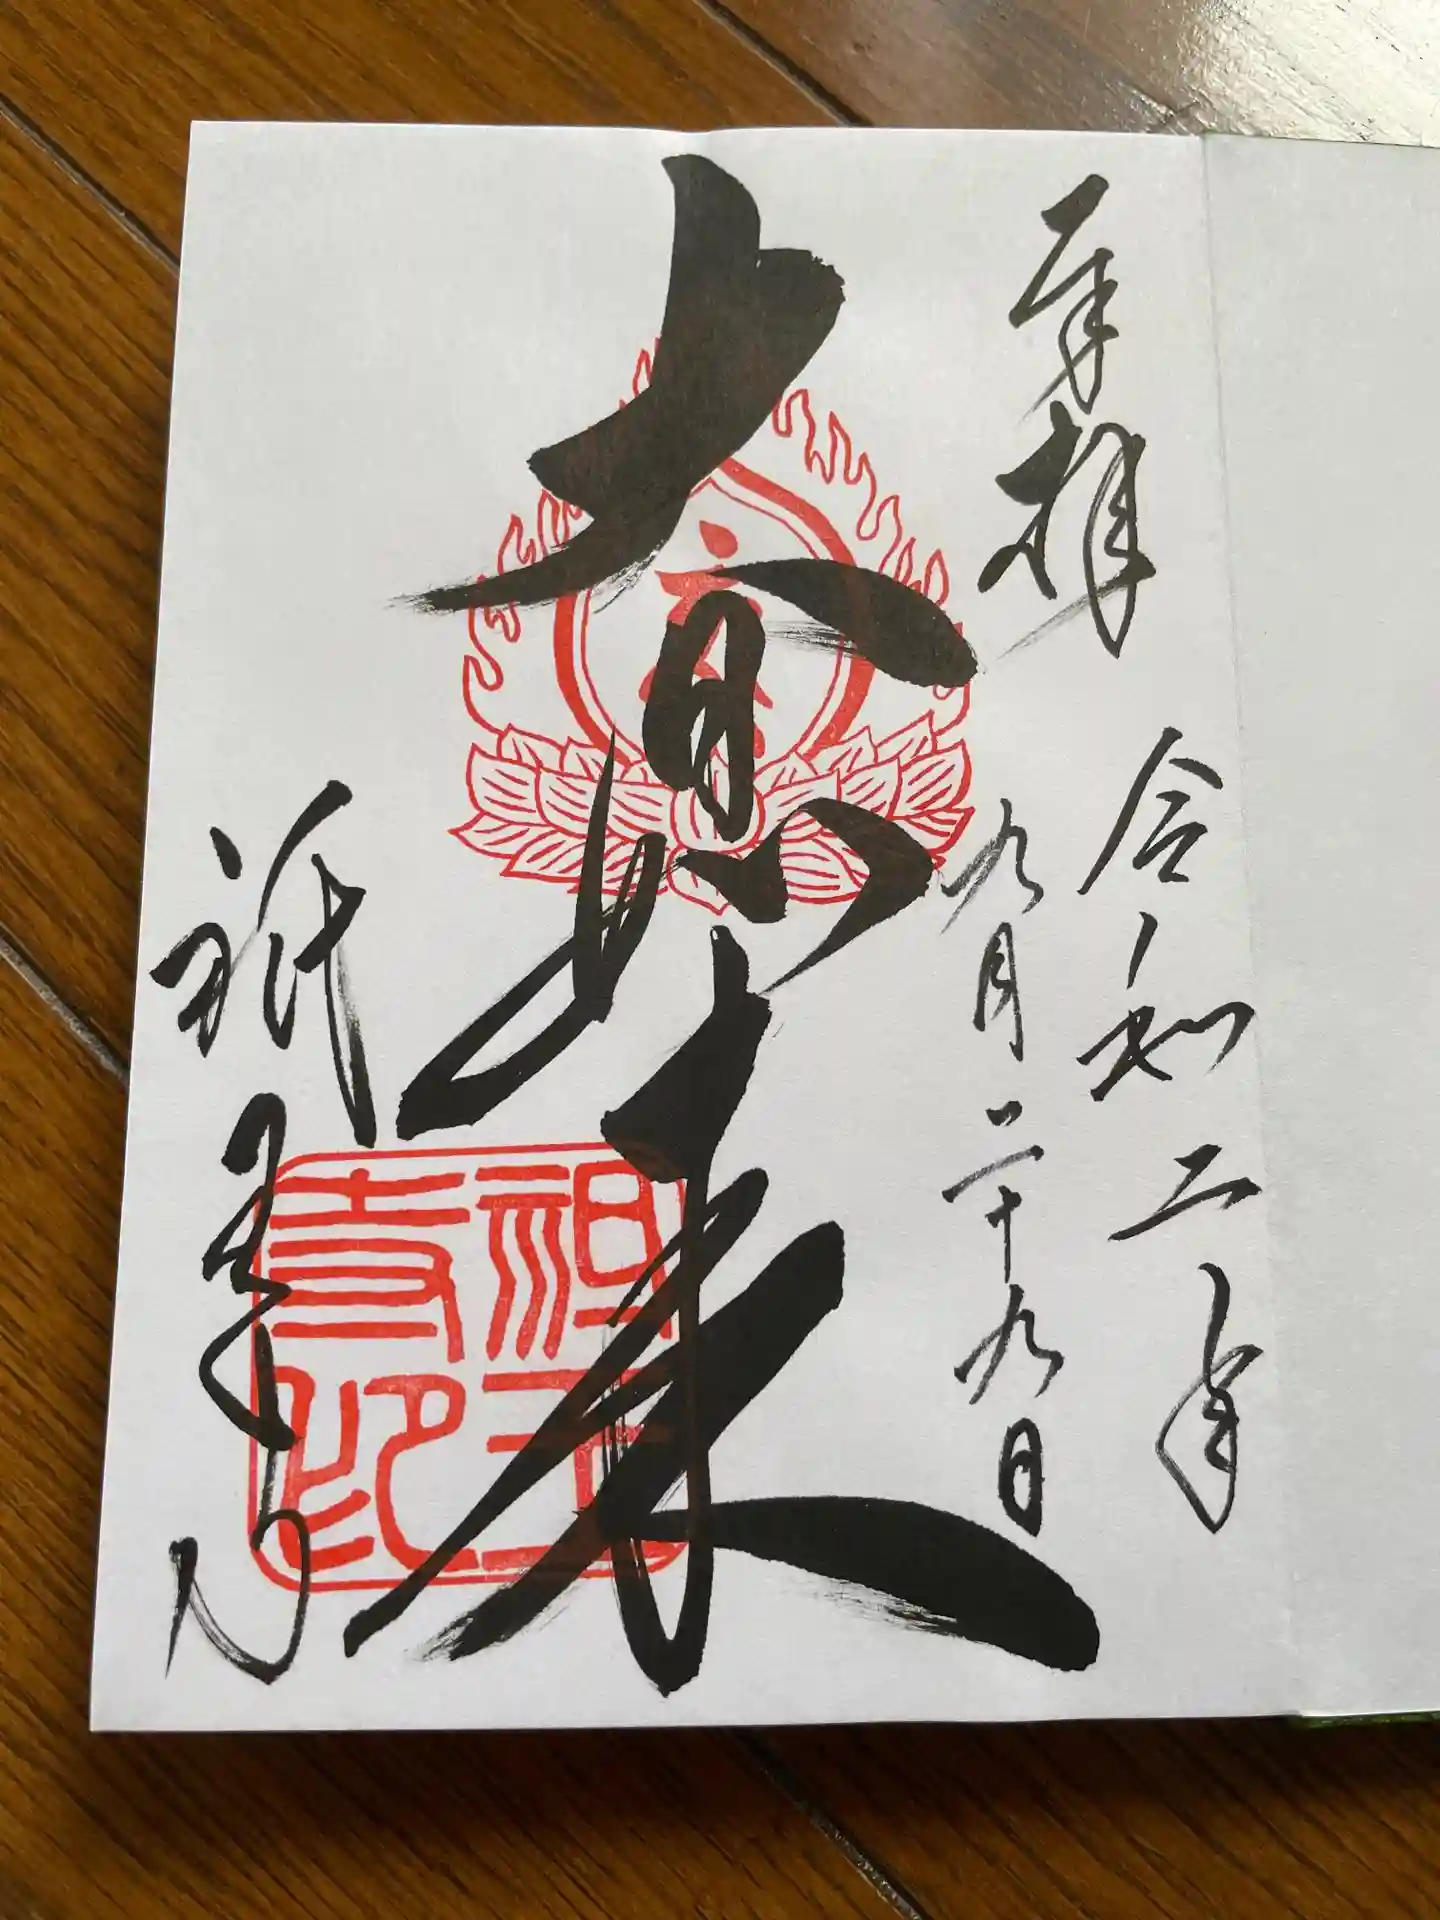 奉拝
令和二年
九月二十九日
大日如来
祇王寺
祇王寺印